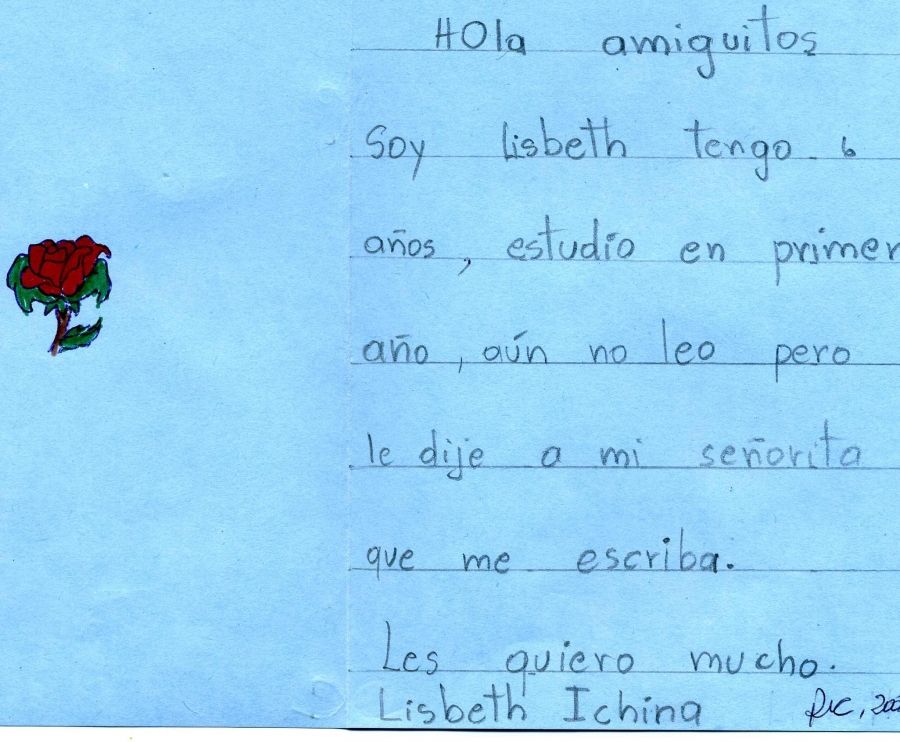 HOla amiguitos
Soy Lisbeth tengo 6
años, estudio en primer
año, aún no leo pero
le dije a mi señorita
que me escriba.
Les quiero mucho.
Lisbeth Ichina